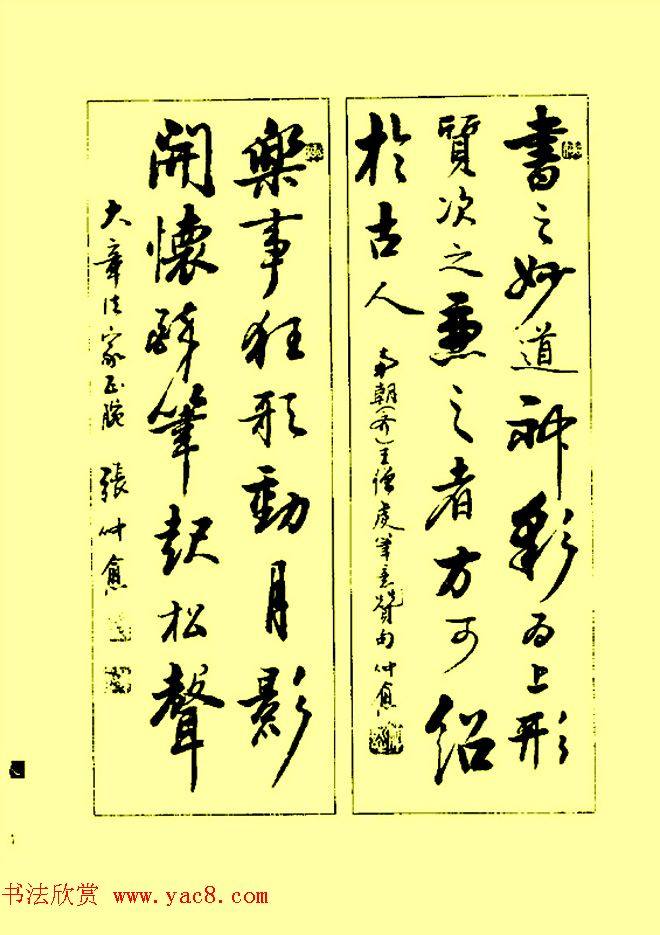 書之妙道神彩为上形
質次之兼之者方可紹
於古人
南朝(齐)王僧虔筆意赞句仲愈
樂事狂歌動月影
開懷醉筆起松聲
大章法家正腕
張仲愈
书法欣赏 www.yac8.com